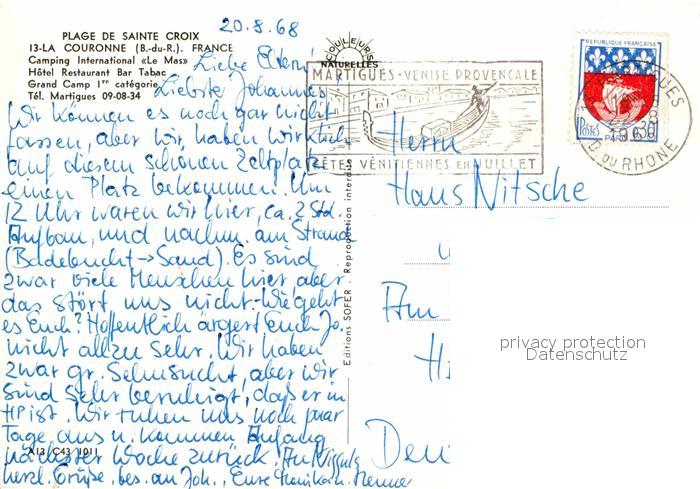 20.8.68
PLAGE DE SAINTE CROIX
13-LA COURONNE (B.-du-R.). FRANCE
Camping International «Le Mas»
Hôtel Restaurant Bar Tabac
Grand Camp 1re catégorie
Tél. Martigues 09-08-34
Liebe Eltern!
Liebste Johannes
Wir können es noch gar nicht
fassen, aber wir haben wirklich
auf diesem schönen Zeltplatz
einen Platz bekommen. Um
12 Uhr waren wir hier, ca. 2 Std.
Aufbau, und nachm. am Strand
(Badebucht → Sand). Es sind
zwar viele Menschen hier, aber
das stört uns nicht. Wie geht
es Euch? Hoffentlich ärgert Euch Jo.
nicht allzu sehr. Wir haben
zwar gr. Sehnsucht, aber wir
sind sehr beruhigt, daß er in
HP ist. Wir ruhen uns noch paar
Tage aus u. kommen Anfang
nächster Woche zurück.
herzl. Grüße, bes. an Joh., Eure
A13 C43 1011
Editions SOFER. - Reproduction interdite
COULEURS
NATURELLES
MARTIGUES - VENISE PROVENÇALE
FÊTES VÉNITIENNES EN JUILLET
REPUBLIQUE FRANÇAISE
POSTES
PARIS
0,30
MARTIGUES
1968
B. DU RHONE
Herrn
Hans Nitsche
Am
H
Deu
privacy protection
Datenschutz